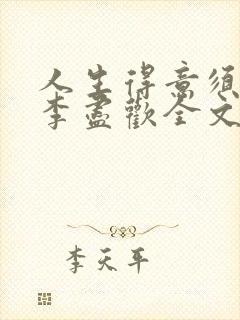 人生得意須
李盡歡全文
李天平